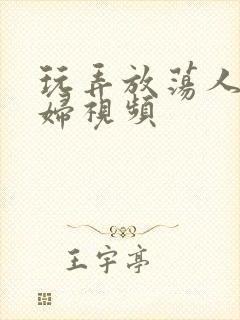 玩弄放荡人
婦視頻
王宇亭